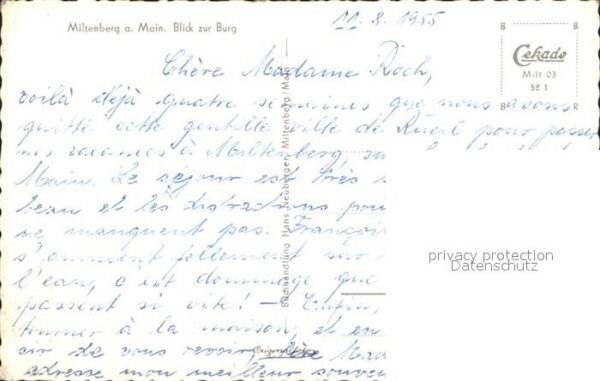 Miltenberg a. Main. Blick zur Burg
11. 8. 1955
8 8
Cekade
Milt 03
52 1
B R
Chère Madame Roch,
voilà déjà quatre semaines que nous avons
quitté cette gentille ville de Rueil pour passer
mes vacances à Miltenberg, su
Main. Le séjour est très
beau et les distractions pou
ne manquent pas. Franço
s'amusent follement sur
l'eau, c'est dommage que
passent si vite! - Enfin,
tourner à la maison, et
sir de vous revoir, chère Ma
adresse mon meilleur souve
Buchhandlung Hans Neuberger, Miltenberg/Main
privacy protection
Datenschutz